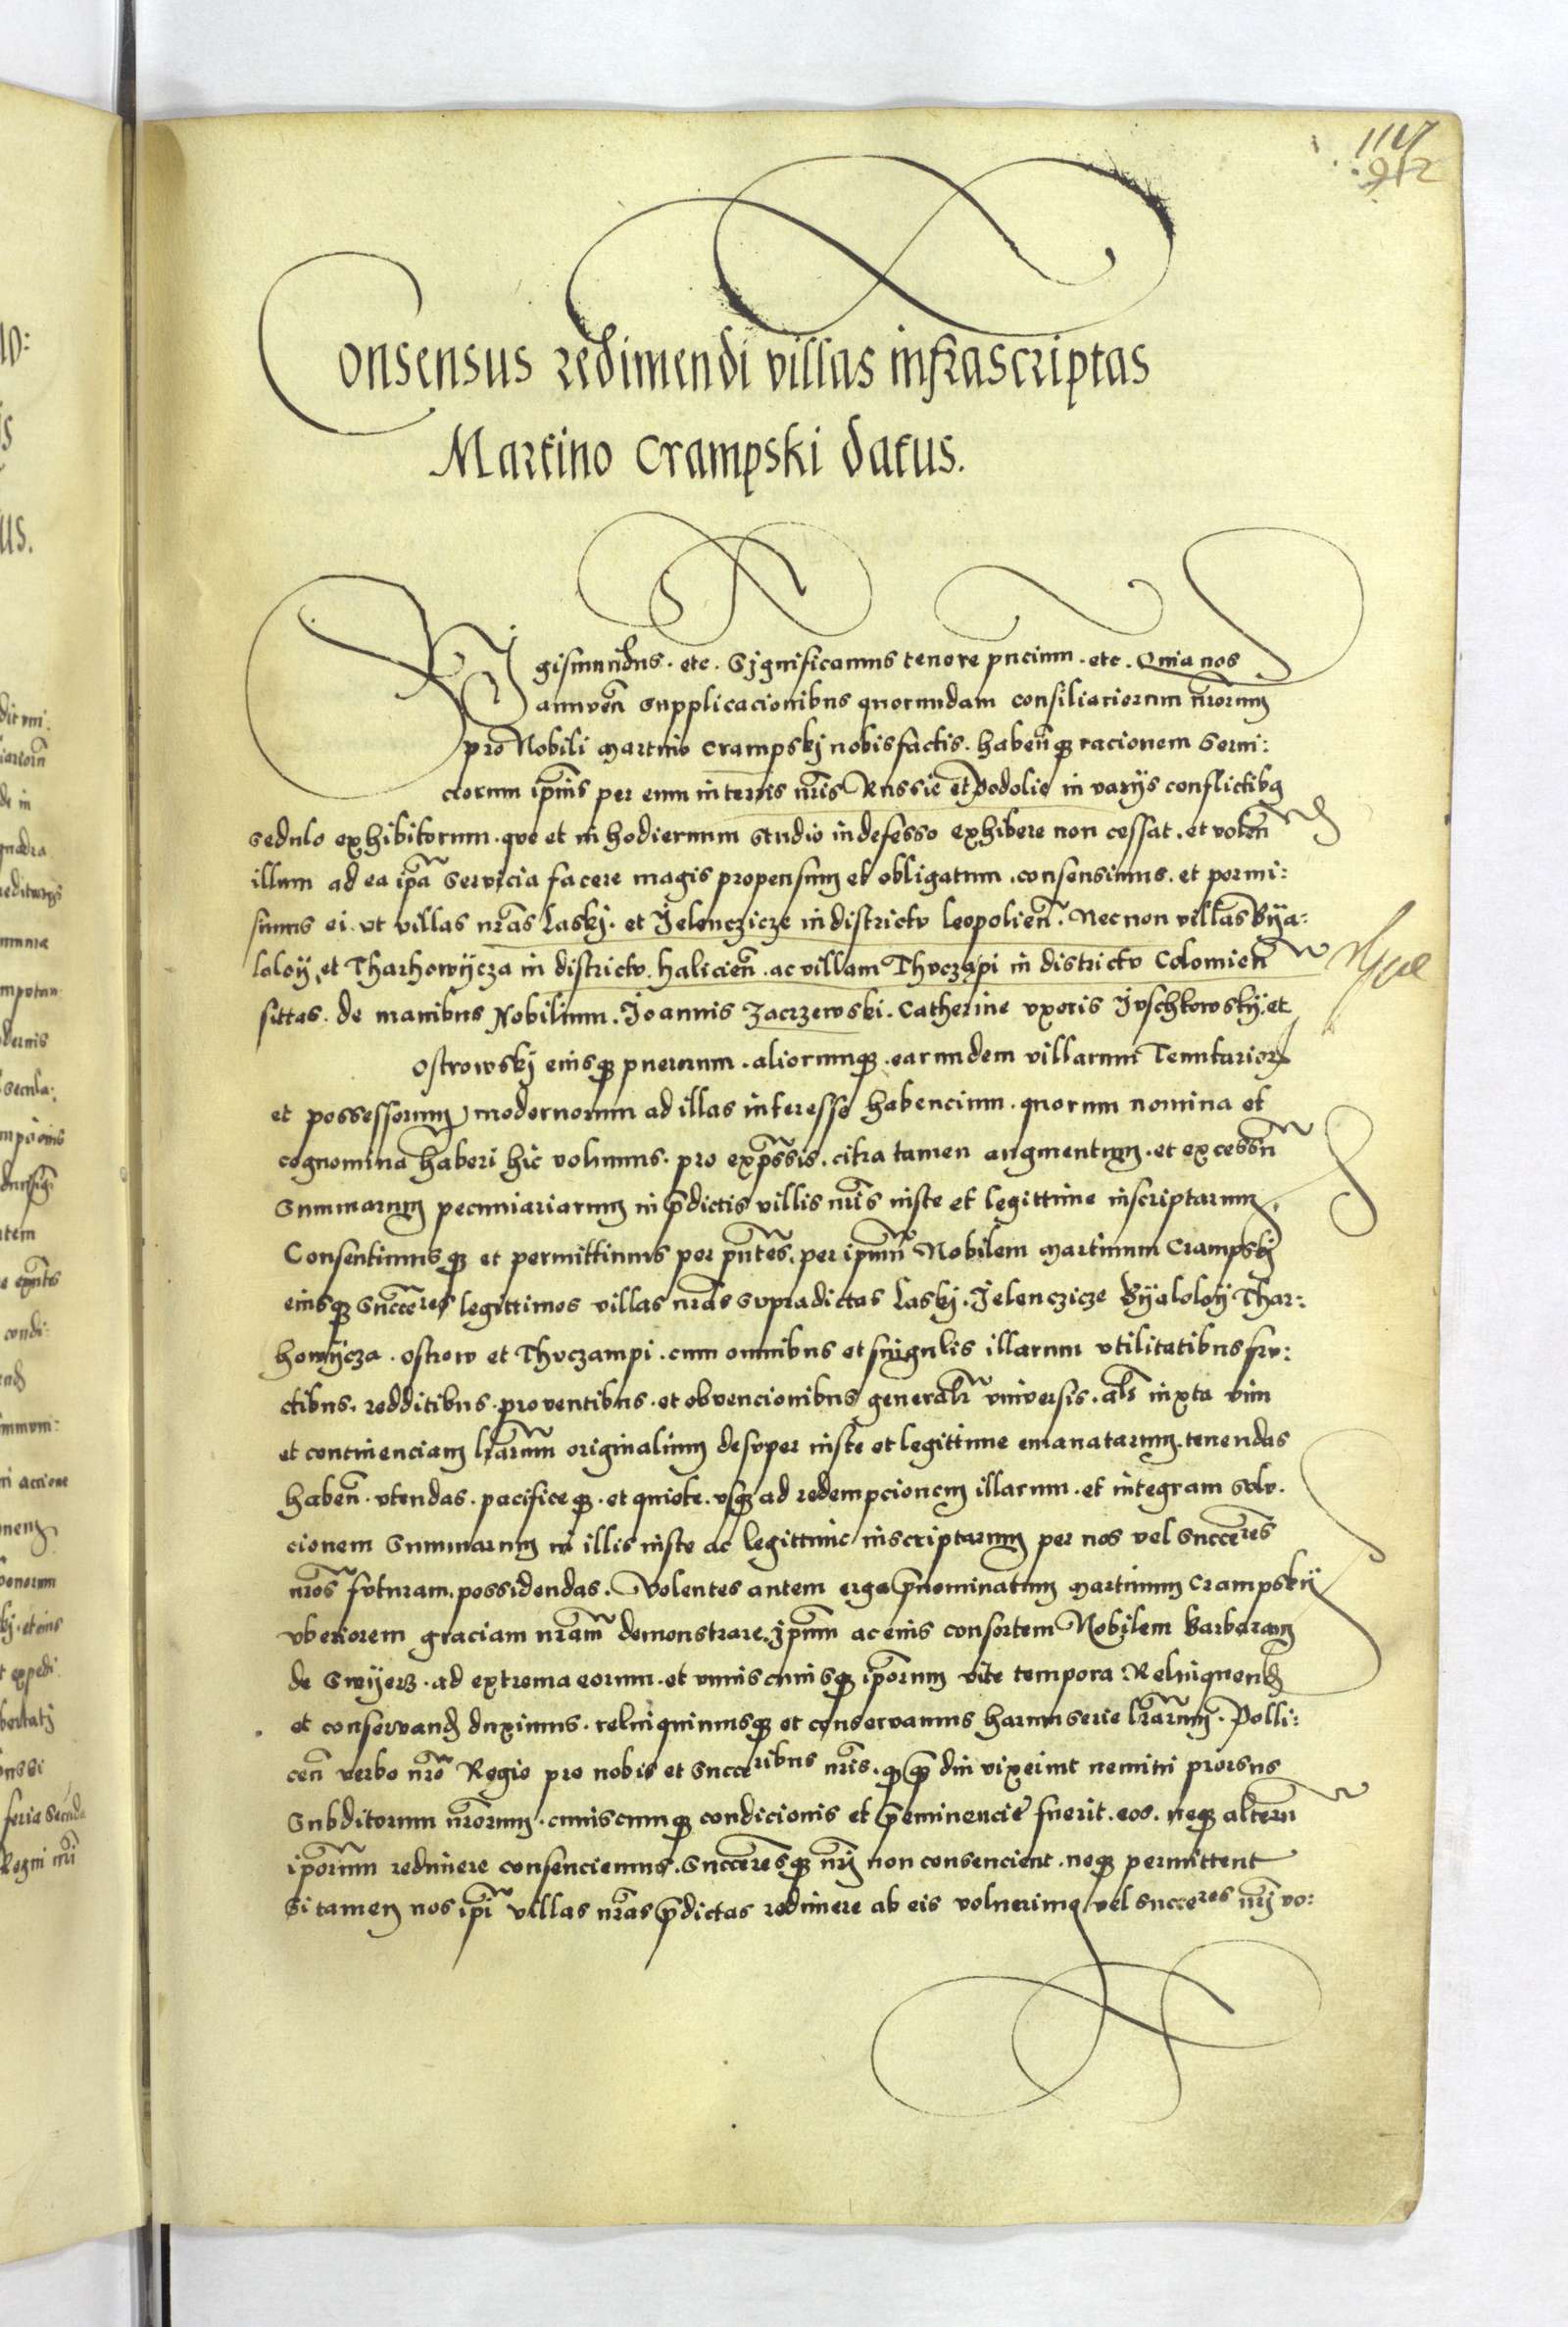 1117
912
Consensus redimendi villas infrascriptas
Martino Crampski datus.
Sigismundus. etc. Significamus tenore pncium. etc. Quia nos
annuen̄ supplicacionibus quorundam consiliariorum nr̄orum
pro Nobili Martino Crampskj nobis factis. haben̄q racionem servi:
ciorum ip̄ius per eum in terris nr̄is Russie et Podolie in varijs conflictibq
sedulo exhibitorum. que et in hodiernum studio indefesso exhibere non cessat. et volen̄
illum ad ea ip̄a servicia facere magis propensum et obligatum. consensimus. et permi:
simus ei. vt villas nr̄as Laskj. et Jelenczicze in districtu leopolien̄. Nec non villas Bÿa:
loloÿ et Tharhowÿcza in districtu. halicien̄. ac villam Thvczapi in districtu Colomien̄
sittas. de manibus Nobilium. Joannis Zaczewski. Catherine vxoris Jvschkowskÿ. et
Ostrowskj eiusq puerorum. aliorumq. earundem villarum Tenutarior
et possessorum modernorum ad illas interesse habencium. quorum nomina et
cognomina haberi hic volumus. pro exp̄ssis. citra tamen augmentum. et excessū
Summarum pecuniariarum in p̄dictis villis nr̄is iuste et legittime inscriptarum.
Consentimusq et permittimus per pn̄tes. per ipsum̄ Nobilem Martinum Crampskj
eiusq succc̄res legittimos villas nr̄as supradictas Laskj. Jelenczicze Bÿaloloÿ Thar:
howÿcza. Ostrow et Thvczampi. cum omnibus et singulis illarum vtilitatibus fru:
ctibus. redditibus. proventibus. et obvencionibus generalr̄ vniversis. als̄ iuxta vim
et continenciam lr̄arum originalium desuper iuste et legittime emanatarum. tenendas
haben̄. vtendas. pacificeq. et quiete. vsq ad redempcionem illarum. et integram solu.
cionem Summarum in illis iuste ac legittime inscriptarum per nos vel succc̄res
nr̄os futuram. possidendas. Volentes autem erga p̄nominatum Martinum Crampskij
vberiorem graciam nr̄am demonstrare. ip̄um ac eius consortem Nobilem Barbaram
de Swÿerz. ad extrema eorum. et vniuscuiusq ip̄orum vite tempora Relinquend
et conservand duximus. relinquimusq et conservamus harum serie lr̄arum. Polli:
cen̄ verbo nr̄o Regio pro nobis et succc̄ribus nr̄is. q q̄ diu vixerint nemini prorsus
Subditorum nr̄orum. cuiuscumq condicionis et p̄eminencie fuerit. eos. neq alterū
ip̄orum redimere consenciemus. Succc̄resq nr̄j non consencient. neq permittent
Si tamen nos ip̄i villas nr̄as p̄dictas redimere ab eis voluerimq vel succc̄res nr̄j vo: